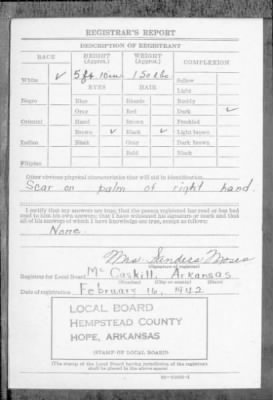 REGISTRAR'S REPORT
DESCRIPTION OF REGISTRANT
RACE HEIGHT (Approx.) WEIGHT (Approx.) COMPLEXION
White ✓ 5 ft. 10 in. 150 lbs. Sallow
EYES HAIR Light
Negro Blue Blonde Ruddy
Gray Red Dark ✓
Oriental Hazel Brown Freckled
Brown ✓ Black ✓ Light brown
Indian Black Gray Dark brown
Bald Black
Filipino
Other obvious physical characteristic that will aid in identification
Scar on palm of right hand.
I certify that my answers are true; that the person registered has read or has had
read to him his own answers; that I have witnessed his signature or mark and that
all of his answers of which I have knowledge are true, except as follows:
None.
Mrs. Sanders Moses
(Signature of registrar)
Registrar for Local Board McCaskill, Arkansas
(Number) (City or county) (State)
Date of registration February 16, 1942
LOCAL BOARD
HEMPSTEAD COUNTY
HOPE, ARKANSAS
(STAMP OF LOCAL BOARD)
(The stamp of the Local Board having jurisdiction of the registrant
shall be placed in the above space)